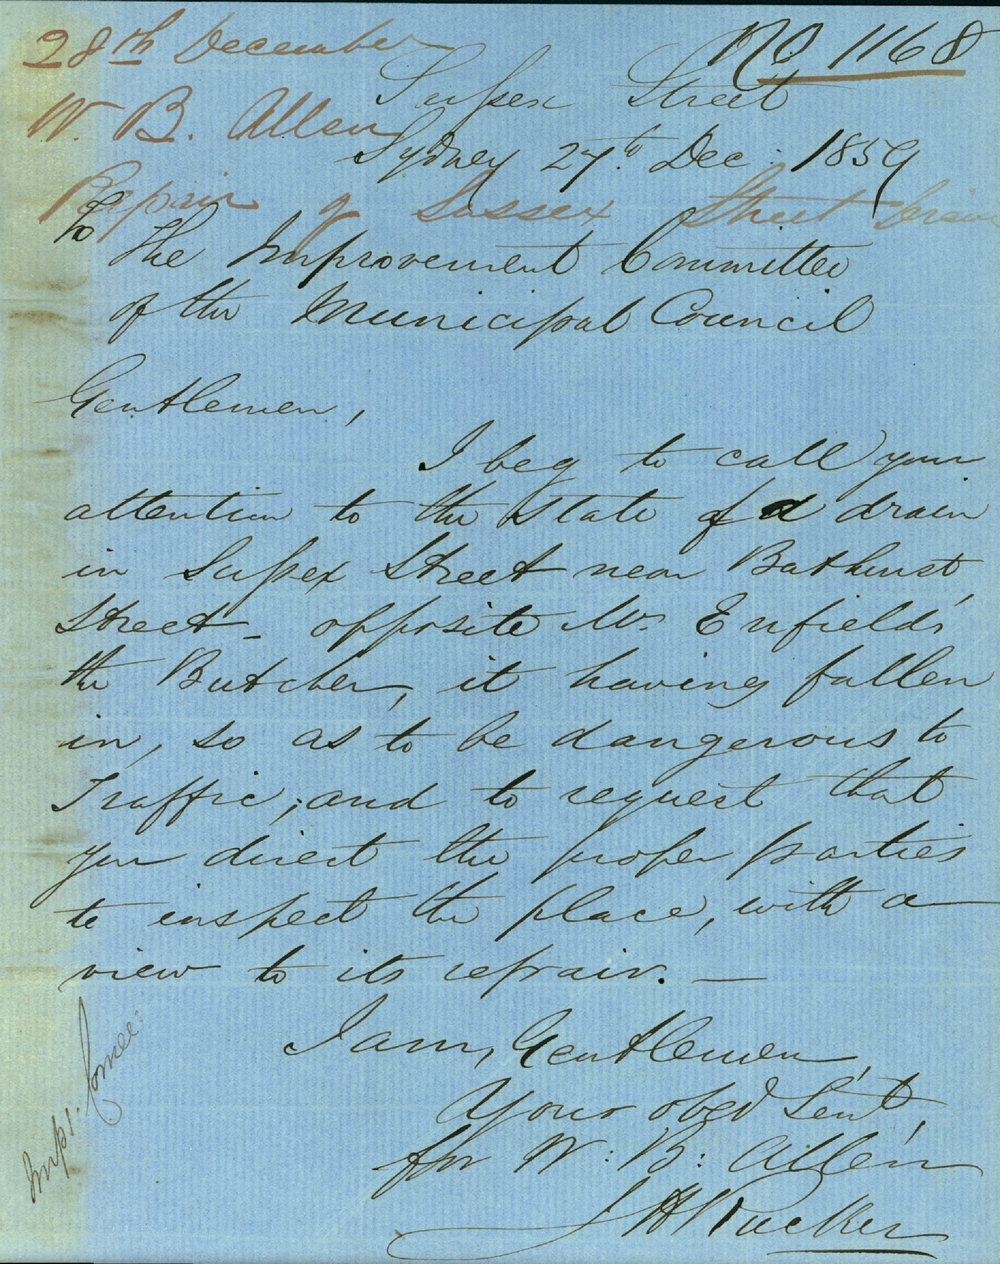 28th December
No 1168
W. B. Allen
Sussex Street
Sydney 27th Dec: 1859
Repair of Sussex Street drain
To the Improvement Committee
of the Municipal Council
Gentlemen,
I beg to call your
attention to the state of a drain
in Sussex Street near Bathurst
Street - opposite Mr. Enfield's
the Butcher, it having fallen
in, so as to be dangerous to
Traffic; and to request that
you direct the proper parties
to inspect the place, with a
view to its repair. —
I am, Gentlemen,
Your obed Sent,
for W: B: Allen
J H Rucker
Impt. Comee: